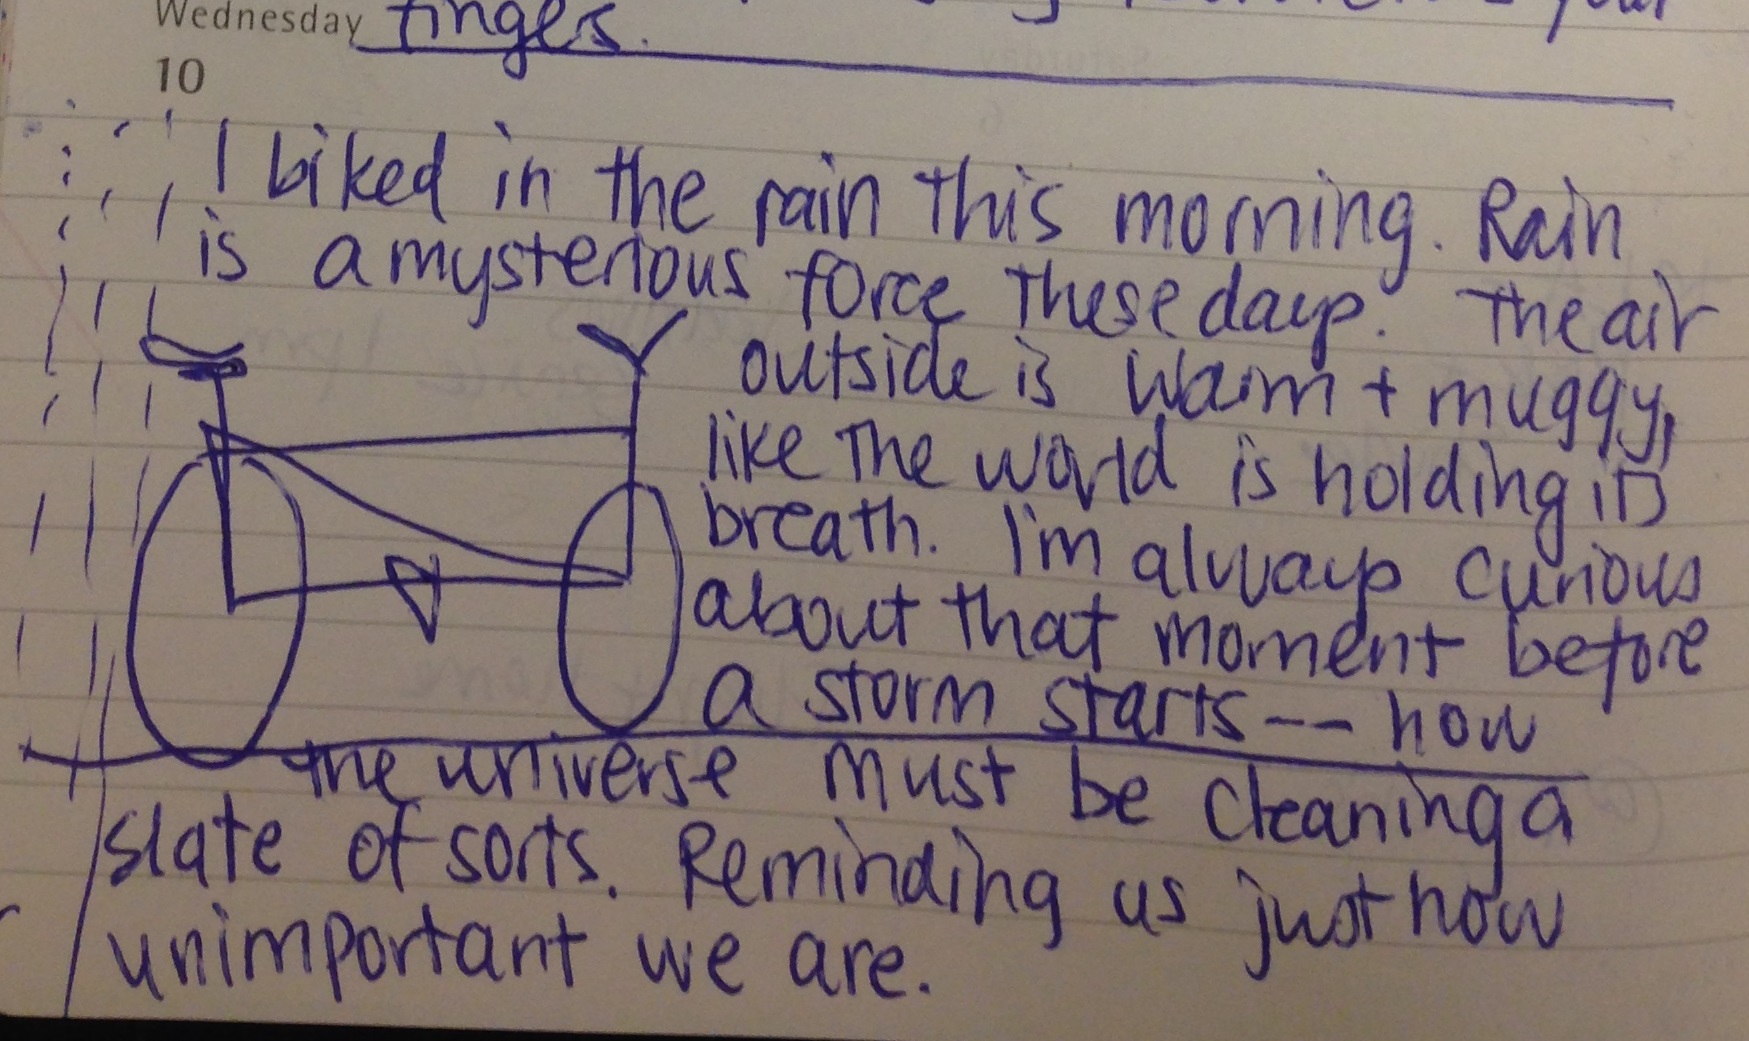 your
Wednesday finges.
10
I biked in the rain this morning. Rain
is a mysterious force these days. The air
outside is warm + muggy,
like the world is holding its
breath. I'm always curious
about that moment before
a storm starts -- how
the universe must be cleaning a
slate of sorts. Reminding us just how
unimportant we are.